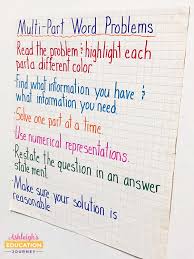 Multi-Part Word Problems
Read the problem & highlight each
part a different color.
-Find what information you have &
what information you need.
-Solve one part at a time.
-Use numerical representations.
-Restate the question in an answer
statement.
-Make sure your solution is
reasonable.
Ashleigh's
EDUCATION
JOURNEY